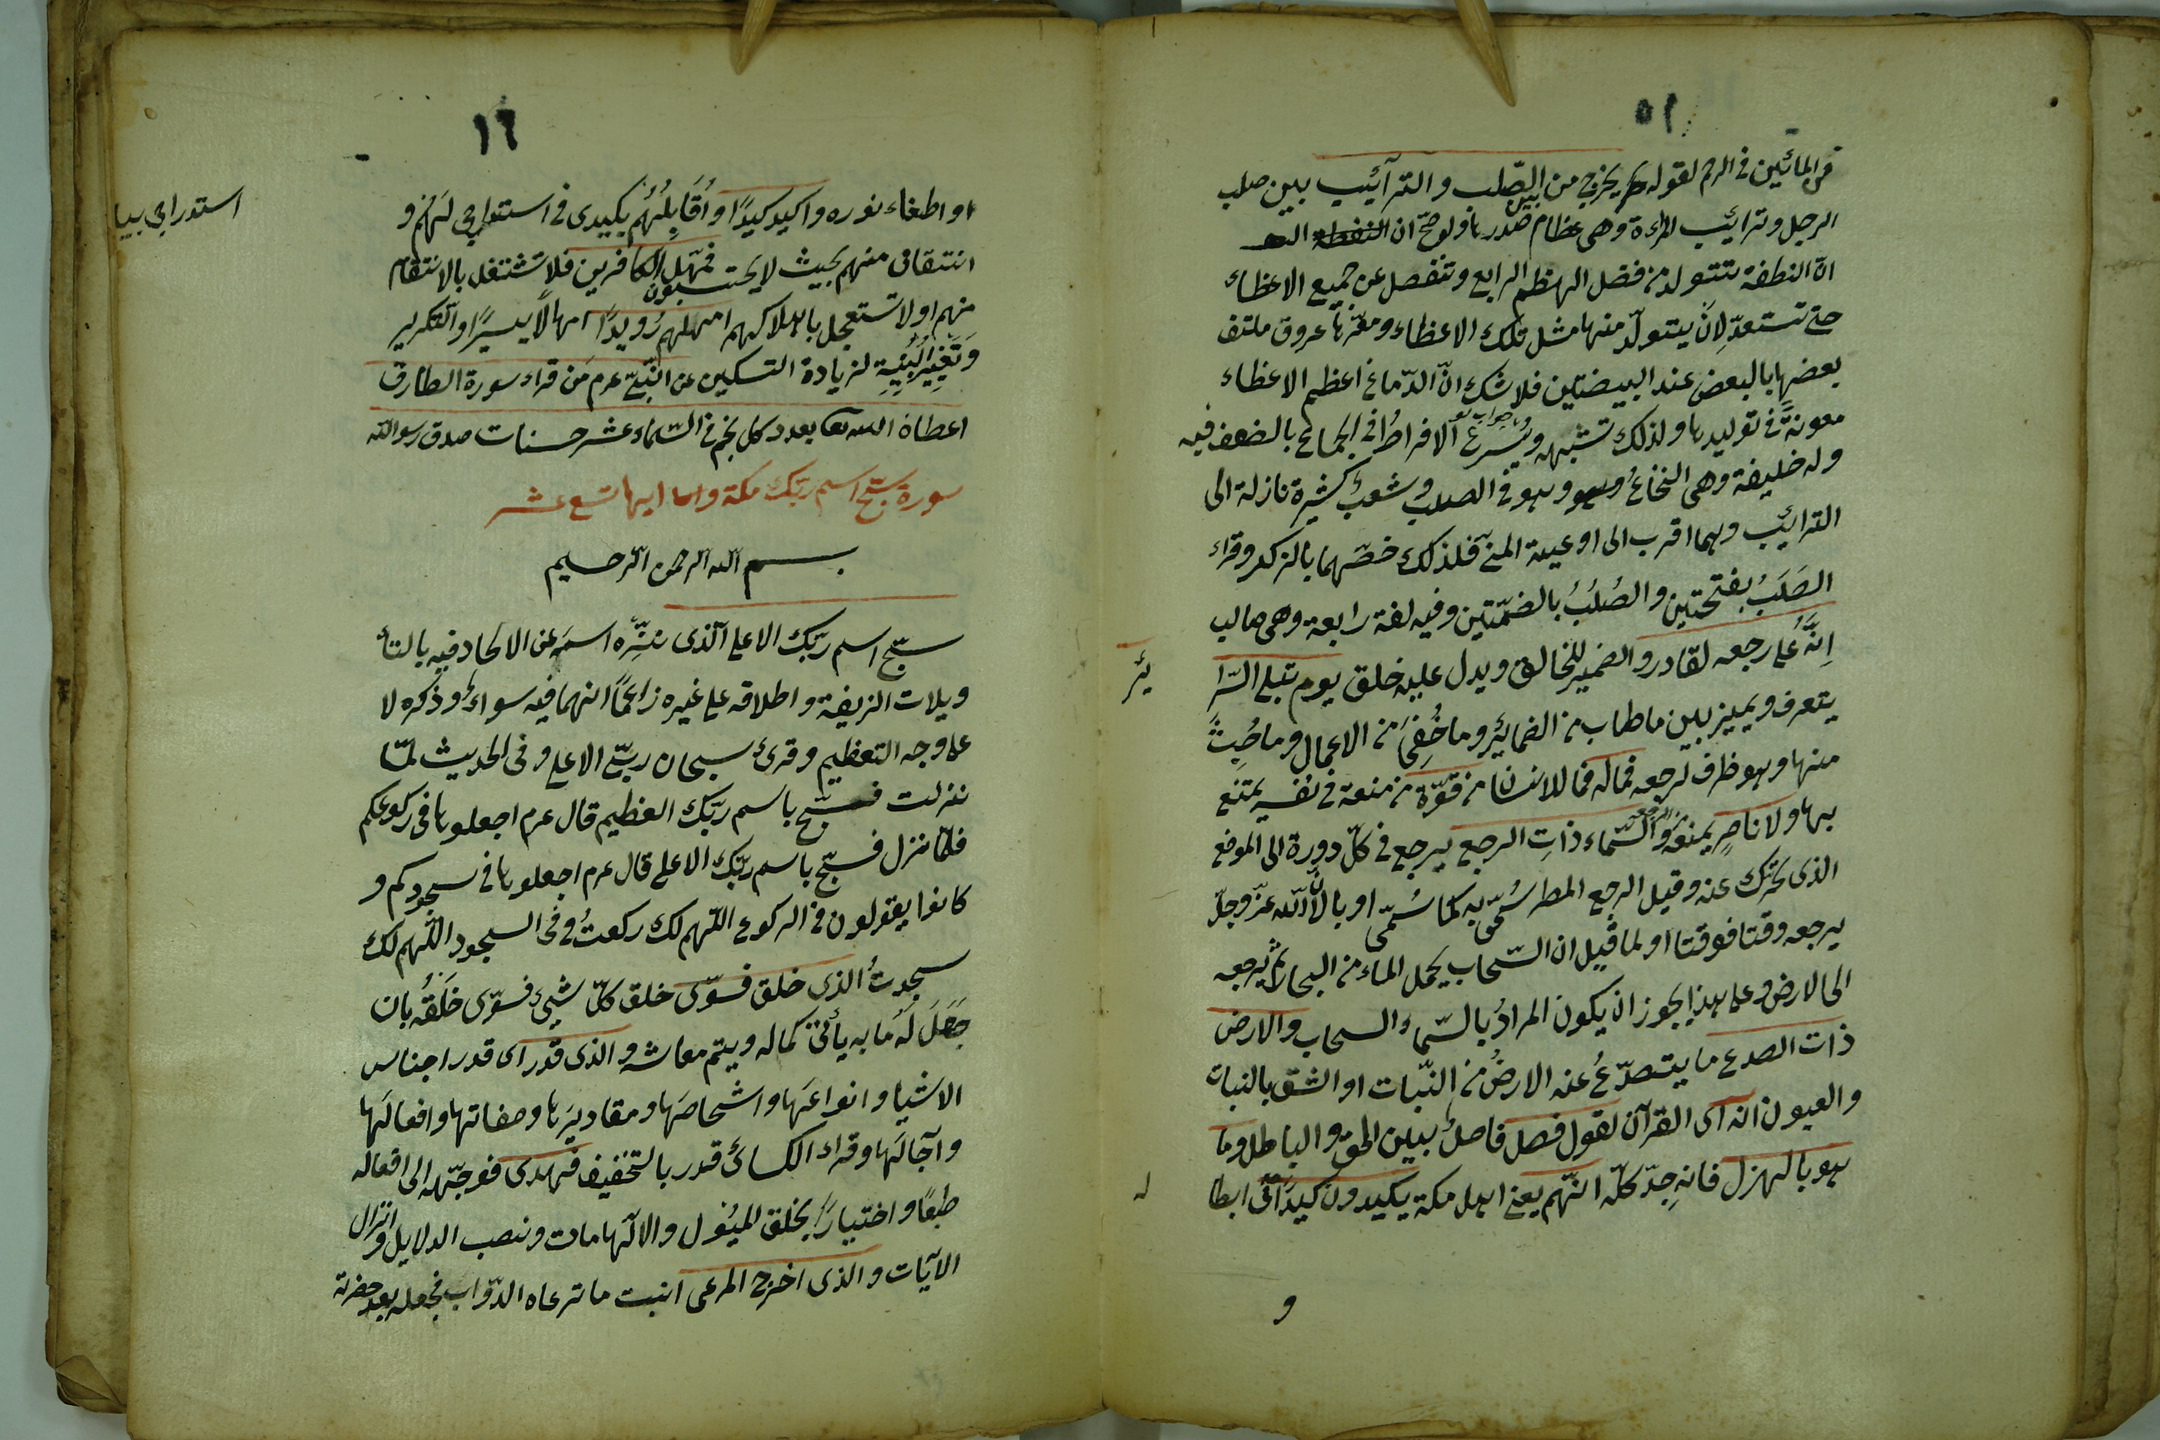 ٥١
من المائين فى الرحم لقوله يخرج من بين الصّلب والترآئيب بين صلب
الرجل وترائيب المرءة وهى عظام صدرها ولو صحّ ان
انّ النطفة تتولد من فضل الهظم الرابع وتنفصل عن جميع الاعظاء
حتى تستعدّ لِاَنْ يتولّد منها مثل تلك الاعظاء ومقرّها عروق ملتف
بعضها بالبعض عند البيضتين فلا شك انّ الدّماغ اعظم الاعظاء
معونةً فى توليدها ولذلك تشبهه ويُسرع الافراطُ فى الجماع بالضعف فيه
وله خليفة وهى النخاعُ وهو فى الصلب وشعبٌ كثيرة نازلة الى
الترائيب وهما اقرب الى اوعية المنىّ فلذلك خصّهما بالزكر وقراء
الصَلَبُ بفتحتين والصُلُبُ بالضمّتين وفيه لغة رابعة وهى صالب
اِنَّهُ على رجعه لقادر والضمير للخالق ويدل عليه خلق يوم تبلى السّرا
ئر
يتعرف ويميز بين ماطاب من الضمائر وما خُفِىَ من الاعمال وما خبِثَ
منها وهو ظرف لرجعه فماله فما للانسان من قوّة من منعة فى نفسه يمتنع
بها ولا ناصرٍ يمنعه والسّماء ذاتِ الرجع يرجع فى كلّ دورة الى الموضع
الذى تحرّك عنه وقيل الرجع المطر سُمّى به كما سُمّى اوبا لانّ الله عزّ وجلّ
يرجعه وقتا فوقتا او لما قيل ان السّحاب يحمل الماء من البحار ثم يرجعه
الى الارض وعلى هذا يجوز ان يكون المرادُ بالسّماء السحاب والارض
ذات الصدع ما يتصدّعُ عنه الارضُ من النّبات او الشق بالنبات
والعيون انه اى القرآن لقول فصل فاصلٌ بين الحق والباطل وما
هو بالهزل فانه جِدّ كلّه انّهم يعنى اهل مكة يكيدون كيدًا فى ابطا
له
و
١٦
او اطغاء نوره واكيد كيدًا واُقَابِلُهُم بكيدى فى استدراجى لهم و
استدراجى بيا
انتقامى منهم بحيث لا يحتسبون فمهّل الكافرين فلا تشتغل بالانتقام
منهم او لا تستعجل باهلاكهم امهلهم رُويدًا امهالًا يسيرًا والتكرير
وتغيير البُنْيَةِ لزيادة التسكين عن النّبىّ عرم من قراء سورة الطارق
اعطاهُ الله تعا بعدد كل نجم فى السّماء عشر حسنات صدق رسو الله
سورة سبّح اسم ربّك مكة واما ايها تسع عشر
بسم الله الرحمن الرّحيم
سبّح اسم ربّك الاعلى الذى نزِّه اسمَه عن الالحاد فيه بالتأ
ويلات الزيغة واطلاقه على غيره زاعمًا انهما فيه سواءٌ وذكره لا
على وجه التعظيم وقرئ سبحان ربىّ الاعلى وفى الحديث لمّا
نزلت فسبّح باسم ربّك العظيم قال عرم اجعلوها فى ركوعكم
فلمّا نزل فسبّح باسم ربّك الاعلى قال عرم اجعلوها فى سجودكم و
كانوا يقولون فى الركوع اللّهم لك ركعتُ وفى السجود اللّهم لك
سجدتُ الذى خلق فسوّى خلق كلّ شيئ فسوّى خَلَقُه بان
جَعَلَ لَه ما به يأتى كماله ويتم معاشه والذى قدر اى قدر اجناس
الاشياء وانواعَها واشحاصَها ومقاديرَها وصفاتها وافعالَها
وآجالَها وقراء الكسائى قدر بالتخفيف فهدى فوجّهه الى افعاله
طبعًا واختيارًا بخلق الميُول والالهامات ونصب الدلايل وانزال
الآيات والذى اخرج المرعى انبت ما ترعاه الدّواب فجعله بعد خضرته